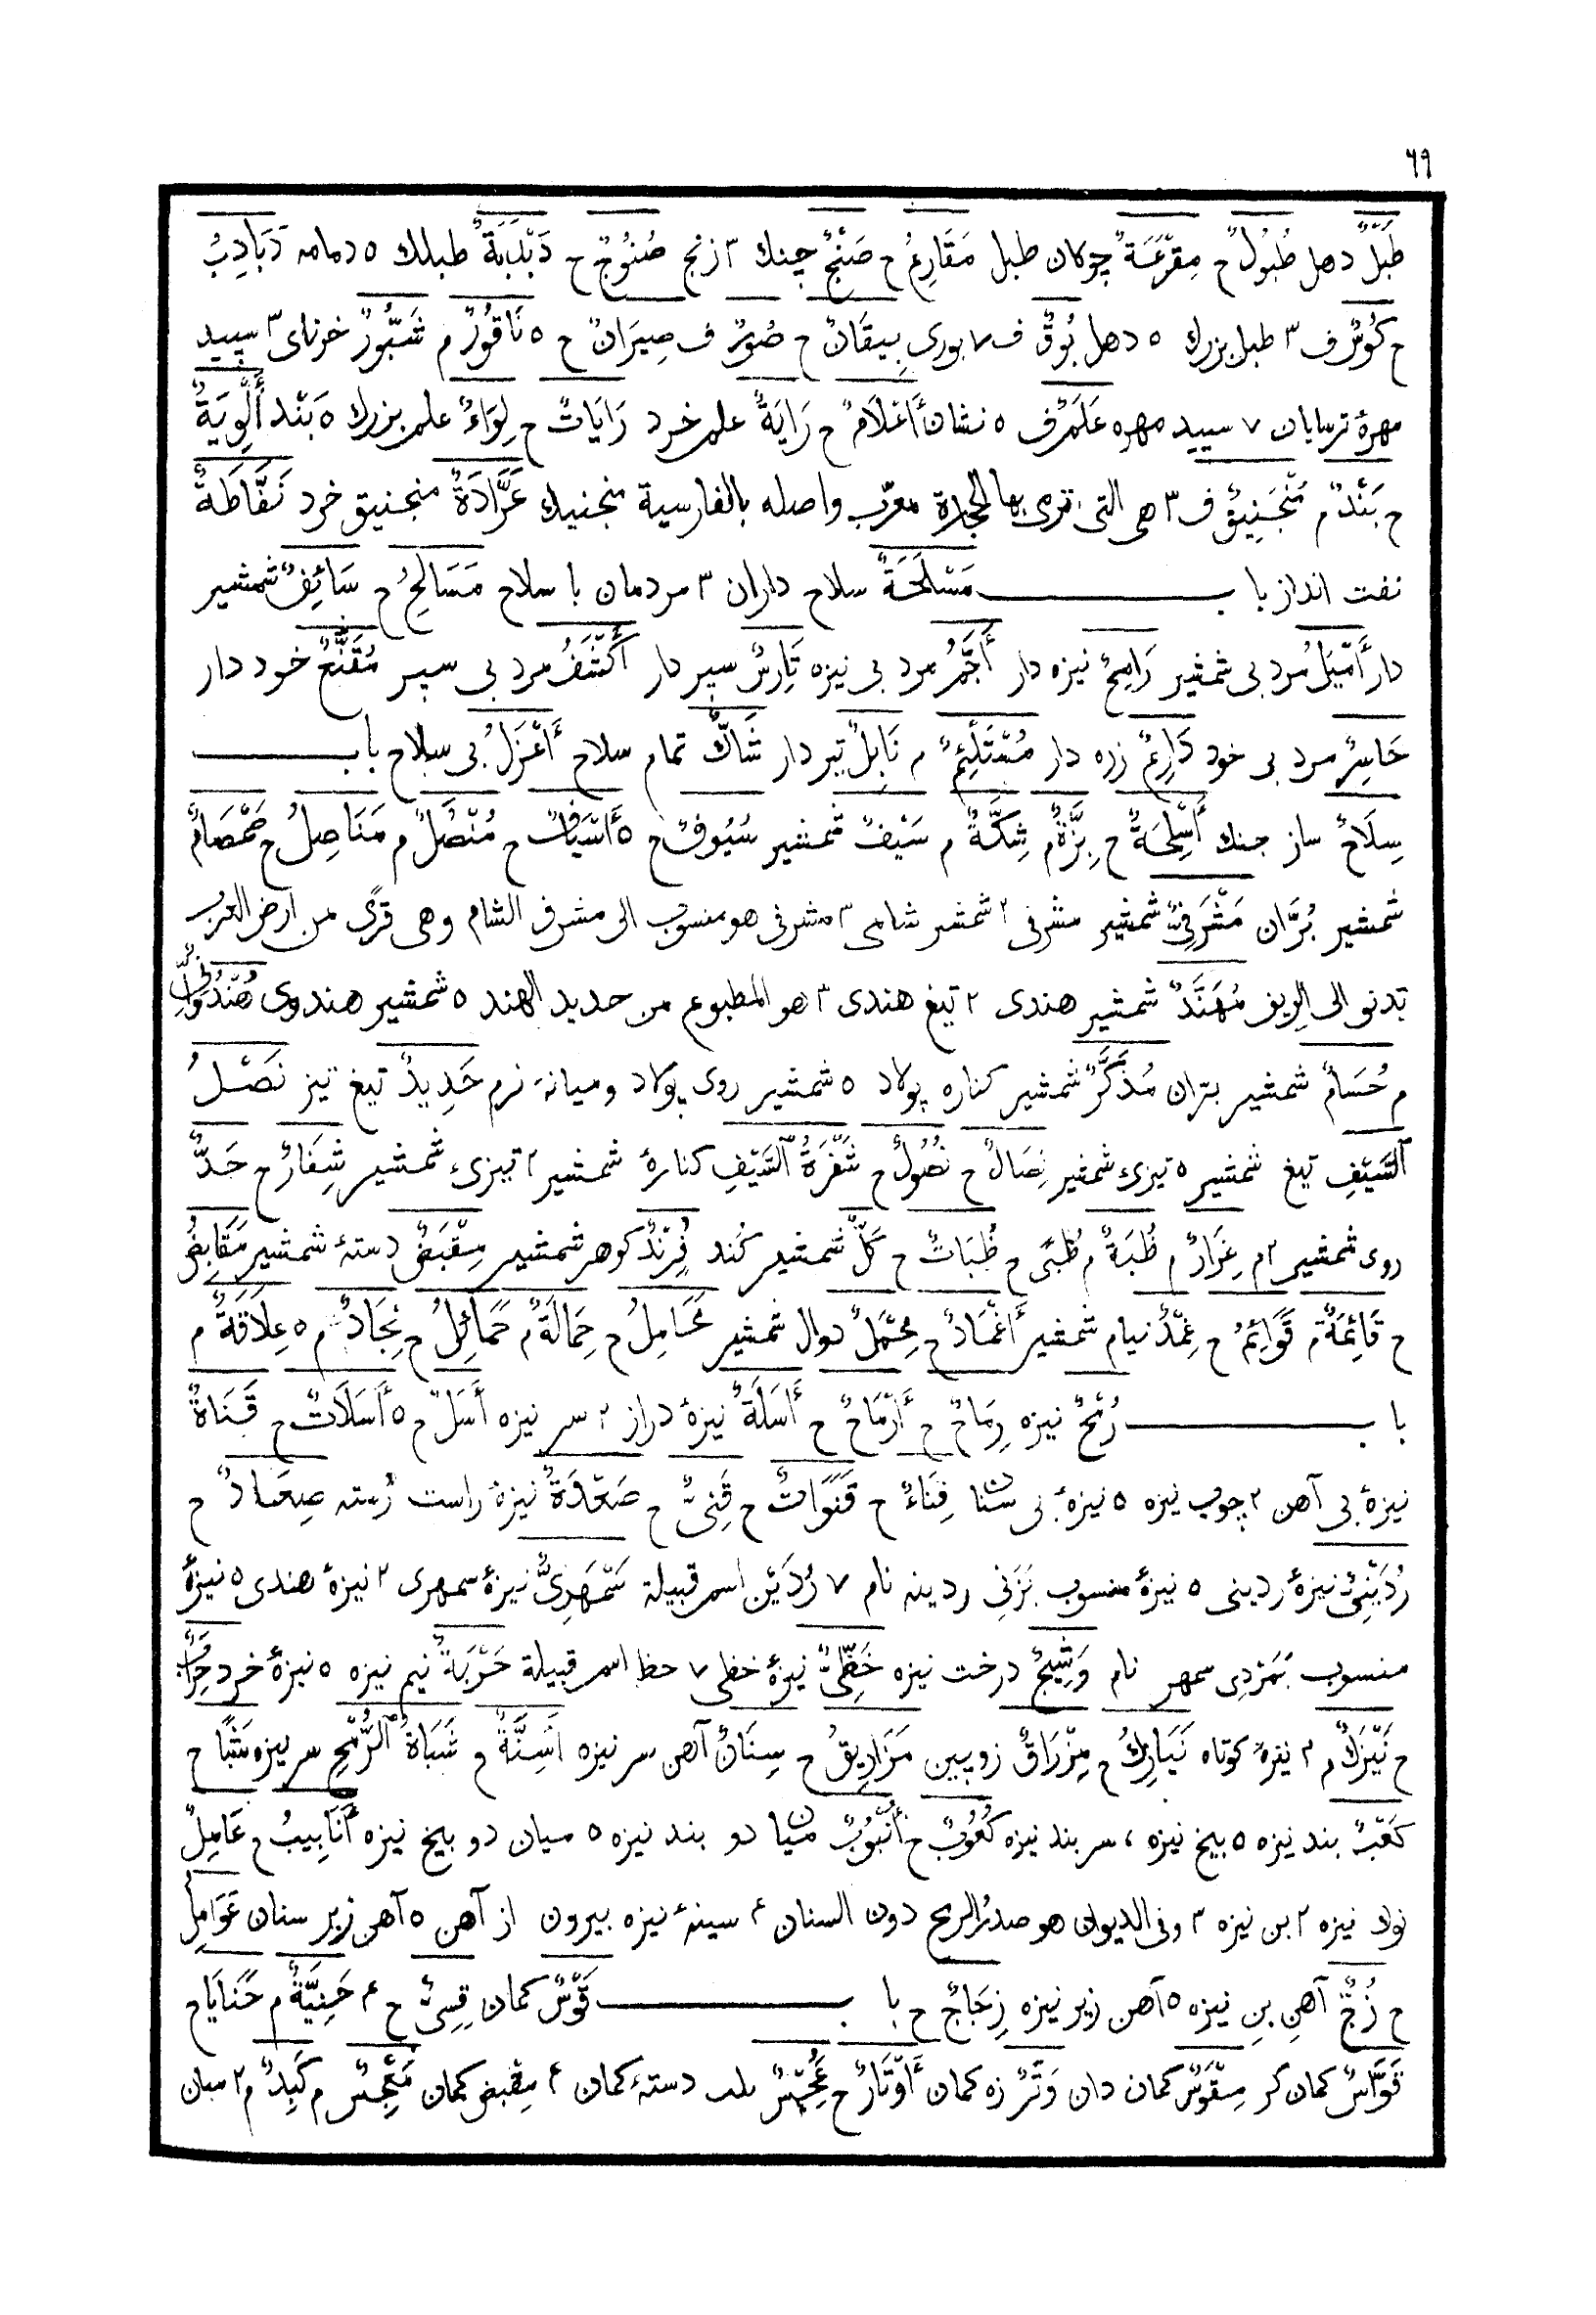 ٦٩
طَبْلٌ دهل طُبُولٌ ح مِقْرَعَةٌ چوكان طبل مَقَارِعُ ح صَنْجٌ چنك ٣ زنج صُنُوجٌ ح دَبْدَبَةٌ طبلك ٥ دمامه دَبَادِبُ
ح كُوسٌ ف ٣ طبل بزرك ٥ دهل بُوقٌ ف ٧ بورى بِيقَانٌ ح صُورٌ ف صِيرَانٌ ح ٥ نَاقُورٌ م شَبُّورٌ خرناى ٣ سپيد
مهرۀ ترسايان ٧ سپيد مهره عَلَمٌ ف ٥ نشان أَعْلَامٌ ح رَايَةٌ علم خرد رَايَاتٌ ح لِوَاءٌ علم بزرك ٥ بَنْد أَلْوِيَةٌ
ح بَنْدٌ م مَنْجَنِيقٌ ف ٣ هى التى ترمى بها الحجارة معرّب واصله بالفارسية منجنيك عَرَّادَةٌ منجنيق خرد نَفَّاطَةٌ
نفت انداز با ب مَسْلَحَةٌ سلاح داران ٣ مردمان با سلاح مَسَالِحُ ح سَائِفٌ شمشير
دار أَمْيَلُ مرد بى شمشير رَامِحٌ نيزه دار أَجَمُّ مرد بى نيزه تَارِسٌ سپر دار أَكْشَفُ مرد بى سپر مُقَنَّعٌ خود دار
حَاسِرٌ مرد بى خود دَارِعٌ زره دار مُسْتَلْئِمٌ م نَابِلٌ تير دار شَاكٌّ تمام سلاح أَعْزَلُ بى سلاح با ب
سِلَاحٌ ساز جنك أَسْلِحَةٌ ح بِزَّةٌ م شِكَّةٌ م سَيْفٌ شمشير سُيُوفٌ ح ٥ أَسْيَافٌ ح مُنْصُلٌ م مَنَاصِلُ ح صَمْصَامٌ
شمشير بُرَّان مَشْرَفِىٌّ شمشير مشرفى ٢ شمشير شامى ٣ مشرفى هو منسوب الى مشرف الشام وهى قرًى من ارض العرب
تدنو الى الريف مُهَنَّدٌ شمشير هندى ٢ تيغ هندى ٣ هو المطبوع من حديد الهند ٥ شمشير هندوى هُنْدُوَانِىٌّ
م حُسَامٌ شمشير بتران مُذَكَّرٌ شمشير كناره پولاد ٥ شمشير روى پولاد و ميانه نرم حَدِيدٌ تيغ تيز نَصْلُ
ٱلسَّيْفِ تيغ شمشير ٥ تيزىء شمشير نِصَالٌ ح نُصُولٌ ح شَفْرَةُ ٱلسَّيْفِ كنارۀ شمشير ٢ تيزىء شمشير شِفَارٌ ح حَدٌّ
روى شمشير ٢ م غِرَارٌ م ظُبَةٌ م ظُبًى ح ظُبَاتٌ ح كَلٌّ شمشير كُند فِرِنْدٌ كوهر شمشير مِقْبَضٌ دستۀ شمشير مَقَابِضُ
ح قَائِمَةٌ م قَوَائِمُ ح غِمْدٌ نيام شمشير أَغْمَادٌ ح مِحْمَلٌ دوال شمشير مَحَامِلُ ح حِمَالَةٌ م حَمَائِلُ ح نِجَادٌ م ٥ عِلَاقَةٌ م
با ب رُمْحٌ نيزه رِمَاحٌ ح أَرْمَاحٌ ح أَسَلَةٌ نيزۀ دراز ٢ سر نيزه أَسَلٌ ح ٥ أَسَلَاتٌ ح قَنَاةٌ
نيزۀ بى آهن ٢ چوب نيزه ٥ نيزۀ بى سنان قِنَاءٌ ح قَنَوَاتٌ ح قَنِىٌّ ح صَعْدَةٌ نيزۀ راست رُسته صِعَادٌ ح
رُدَيْنِىٌّ نيزۀ ردينى ٥ نيزۀ منسوب بَزَنِى ردينه نام ٧ رُدَيْن اسم قبيلة سَمْهَرِىٌّ نيزۀ سمهرى ٢ نيزۀ هندى ٥ نيزۀ
منسوب بَمَرْدِى سمهر نام وَشِيجٌ درخت نيزه خَطِّىٌّ نيزۀ خطى ٧ خط اسم قبيلة حَرْبَةٌ نيم نيزه ٥ نيزۀ خرد حِرَابٌ
ح نَيْزَكٌ م ٢ نيزۀ كوتاه نَيَازِكُ ح مِزْرَاقٌ زوپين مَزَارِيقُ ح سِنَانٌ آهن سر نيزه أَسِنَّةٌ ح شَبَاةُ ٱلرُّمْحِ سر نيزه شَبًا ح
كَعْبٌ بند نيزه ٥ بيخ نيزه ، سر بند نيزه كُعُوبٌ ح أُنْبُوبٌ ميان دو بند نيزه ٥ ميان دو بيخ نيزه أَنَابِيبُ ح عَامِلٌ
نوك نيزه ٢ بن نيزه ٣ وفى الديوان هو صدرُ الرمح دون السنان ۴ سينۀ نيزه بيرون از آهن ٥ آهن زير سنان عَوَامِلُ
ح زُجٌّ آهنِ بنِ نيزه ٥ آهن زير نيزه زِجَاجٌ ح با ب قَوْسٌ كمان قِسِىٌّ ح ۴ حَنِيَّةٌ م حَنَايَا ح
قَوَّاسٌ كمان كر مِقْوَسٌ كمان دان وَتَرٌ زه كمان أَوْتَارٌ ح عَجْسٌ دستۀ كمان ۴ مِقبض كمان مَعْجِسٌ م كَبِدٌ م ٢ ميان